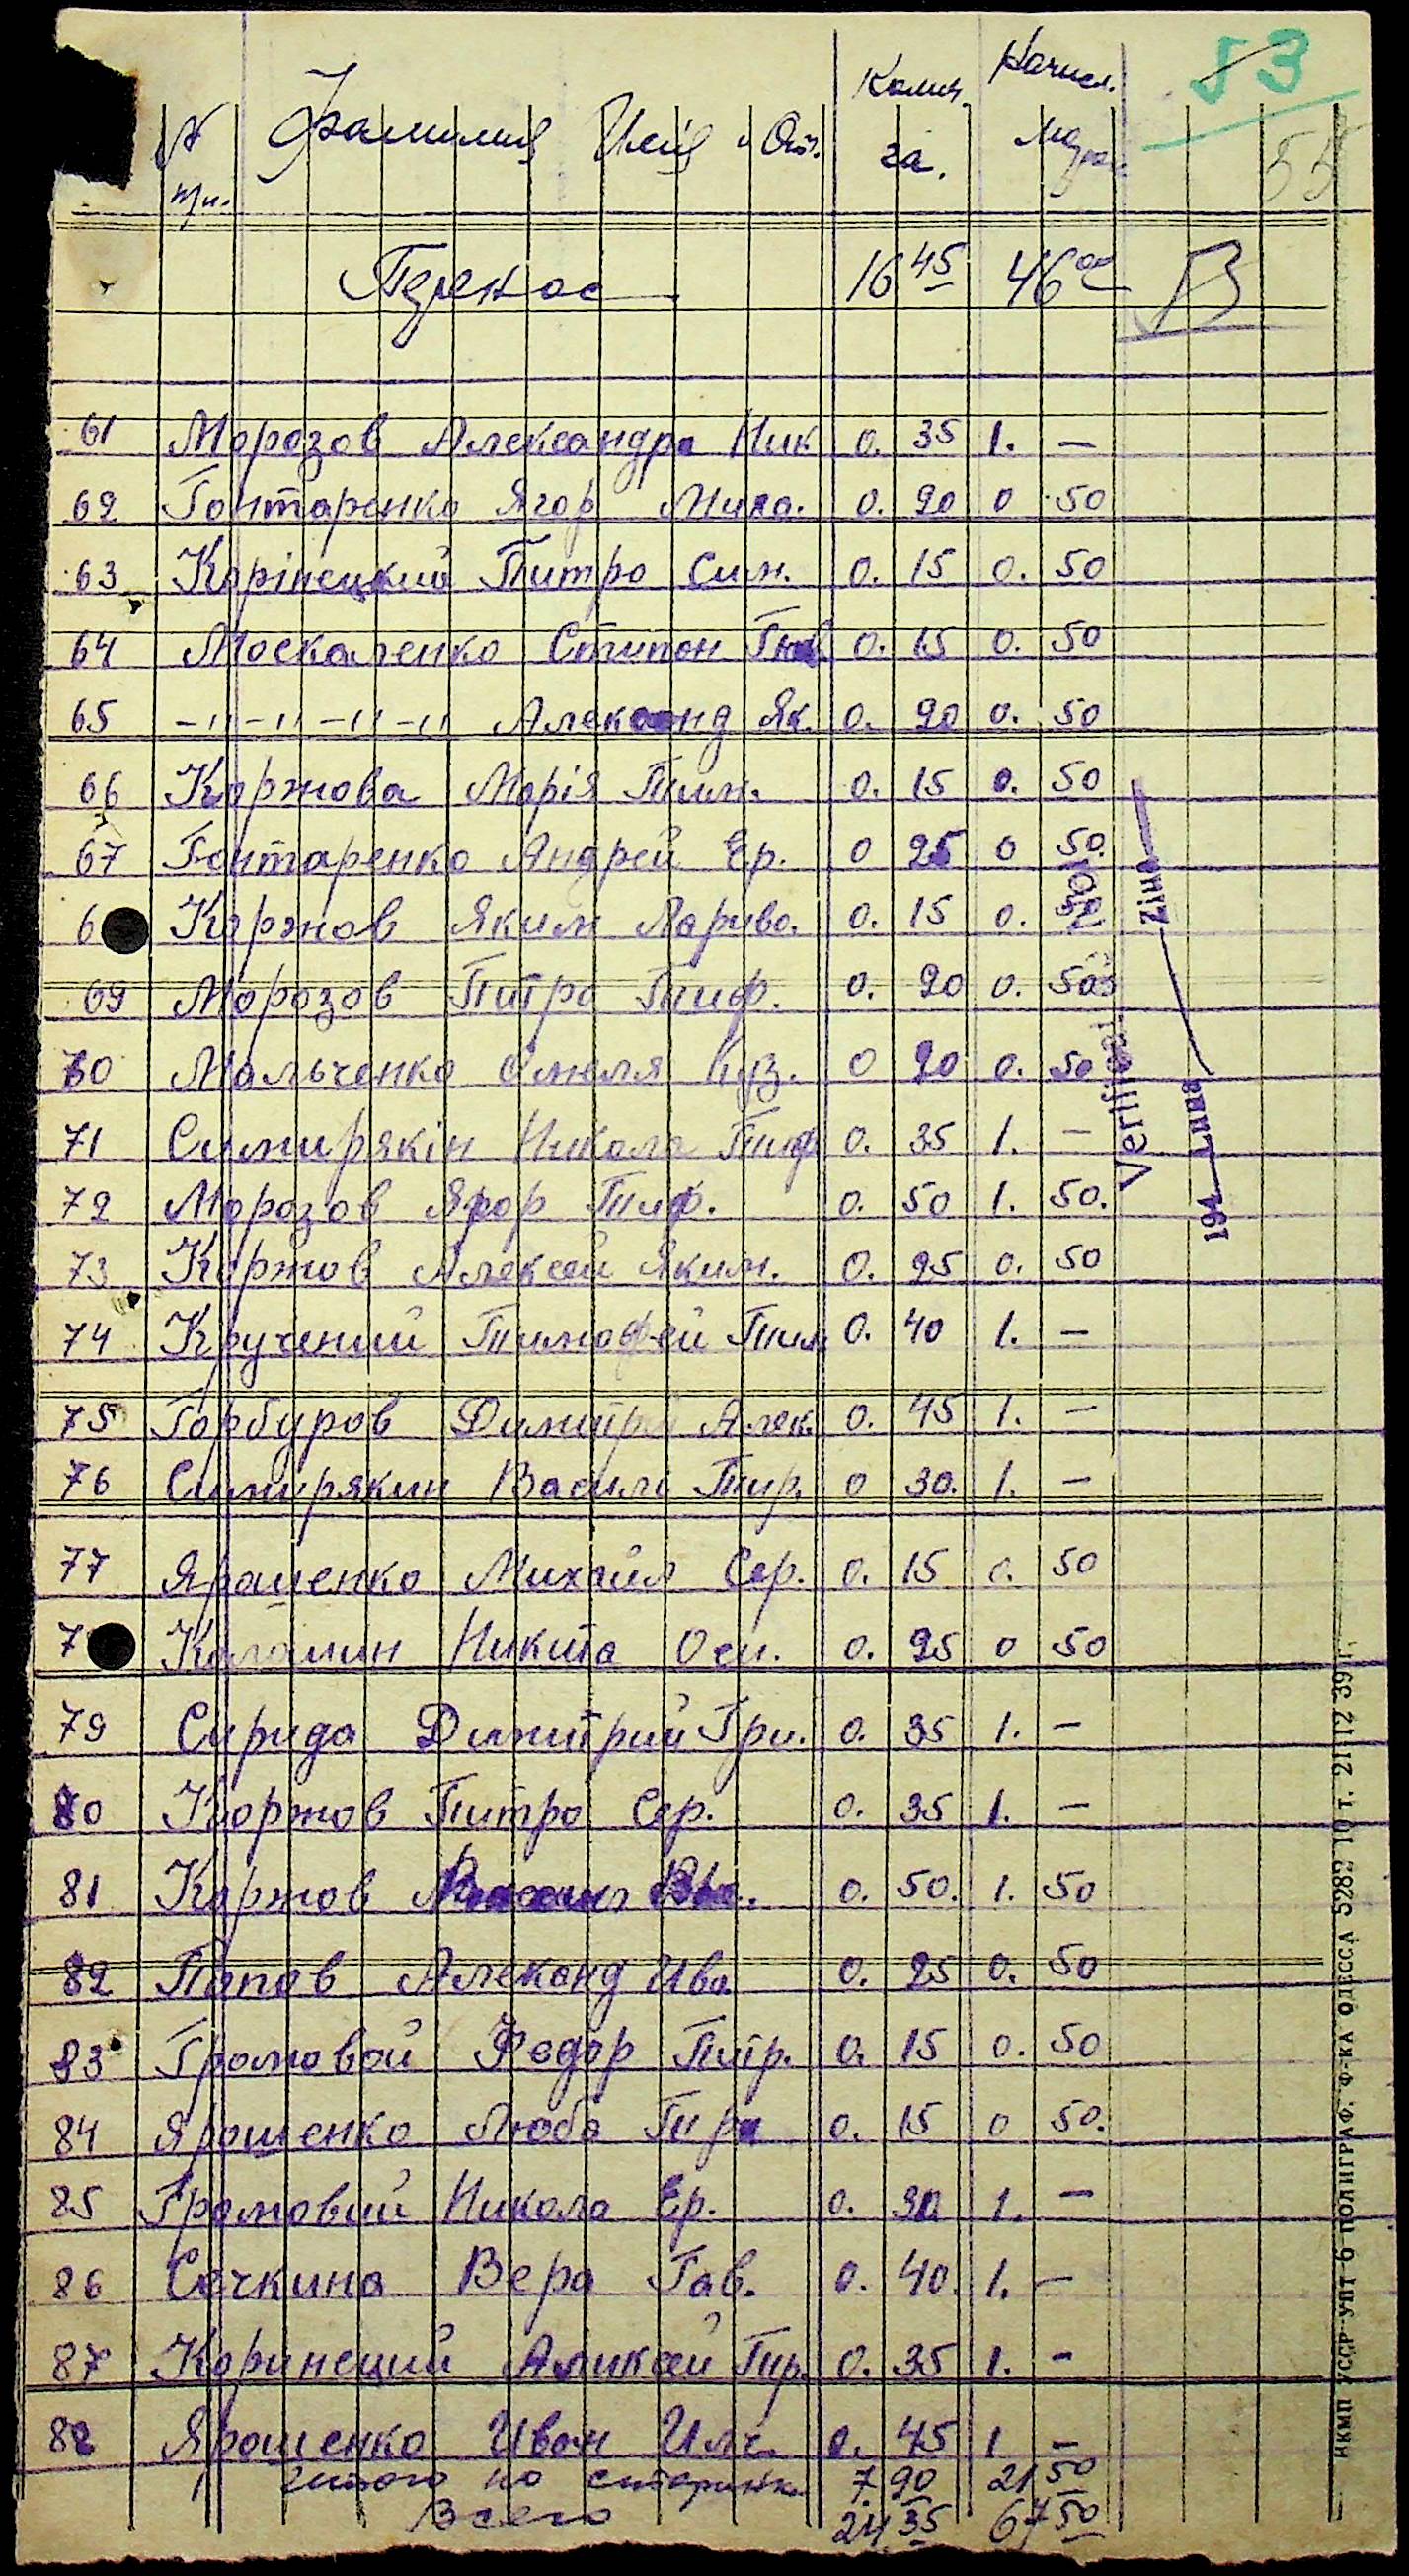 53
Колич. Начисл.
№ Фамилия Имя и От. га.
пп.
55
Перенос 16 45 46 00 53
61 Морозов Александра Ник 0. 35 1. —
62 Гонтаренко Ягор Миха. 0. 20 0 50
63 Корінецкий Питро Сим. 0. 15 0. 50
64 Москаленко Стипон 0. 15 0. 50
65 –"–"–"–" Александ Як. 0. 20 0. 50
66 Коржова Марія Тим. 0. 15 0. 50
67 Гонтаренко Андрей Ер. 0 25 0 50.
6 Коржов Яким Лариво. 0. 15 0. 50
69 Морозов Питро Тиф. 0. 20 0. 50
70 Мальченко Омеля Куз. 0 20 0. 50
71 Симирякін Никола Тиф 0. 35 1. —
72 Морозов Ягор Тиф. 0. 50 1. 50.
73 Коржов Алексей Яким. 0. 25 0. 50
74 Кручиний Тимофей Тим 0. 40 1. —
75 Горбуров Димитри Алек. 0. 45 1. —
76 Симирякин Василь Тир. 0 30. 1. —
77 Ярошенко Михаил Сер. 0. 15 0. 50
7 Калашин Никита Оси. 0. 25 0 50
79 Сирида Димитрий Гри. 0. 35 1. —
80 Коржов Питро Сер. 0. 35 1. —
81 Коржов 0. 50. 1. 50
82 Попов Алеканд Ива. 0. 25 0. 50
83 Громовой Федор Питр. 0. 15 0. 50
84 Ярошенко Люба 0. 15 0 50.
85 Громовий Никола Ер. 0. 30. 1. —
86 Сочкина Вера Гав. 0. 40. 1. —
87 Коринеций Аликсей Пир. 0. 35 1. -
88 Ярошенко Иван Илч. 0. 45 1 —
итого по старинк 7. 90 21 50
Всего 24 35 67 50
Verificat
Ziua
194 Luna
НКМП УССР УПТ 6 ПОЛИГРАФ. Ф-КА ОДЕССА 5282 10 т. 21 12 39 г.